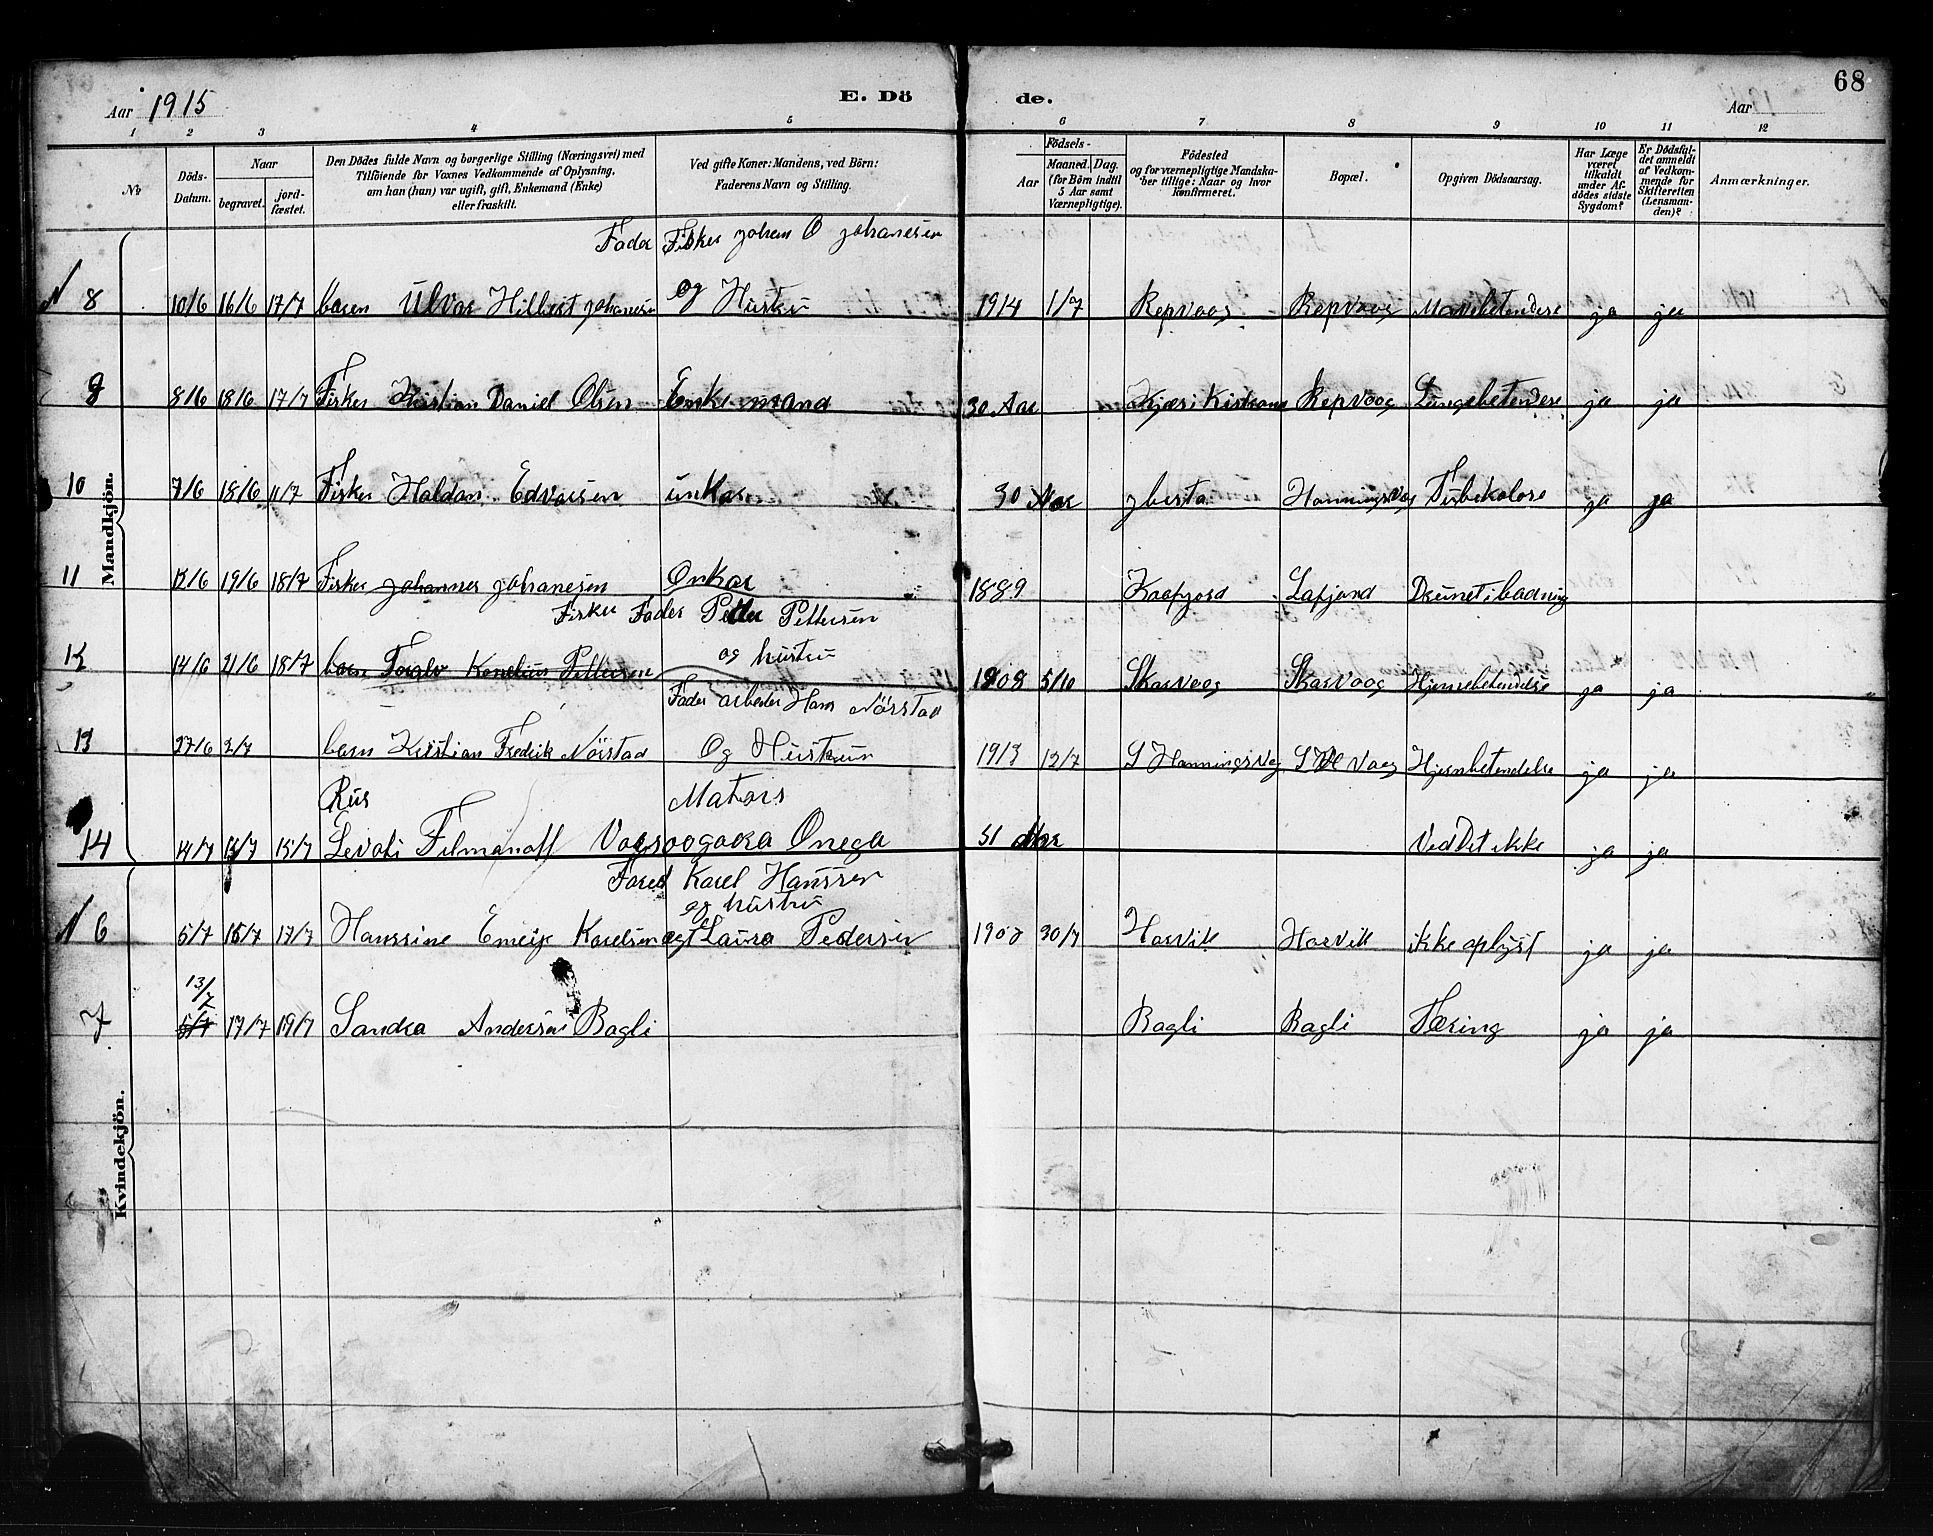 68
Aar 1915 E. Dö de. Aar
1 2 3 4 5 6 7 8 9 10 11 12
No Döds-Datum. Naar begravet. jord-fæstet. Den Dödes fulde Navn og borgerlige Stilling (Næringsvei) med Tilföiende for Voxnes Vedkommende af Oplysning, om han (hun) var ugift, gift, Enkemand (Enke) eller fraskilt. Ved gifte Koner: Mandens, ved Börn: Faderens Navn og Stilling. Födsels- Aar Maaned. Dag. (for Börn indtil 5 Aar samt Værnepligtige). Födested og for værnepligtige Mandska-ber tillige: Naar og hvor konfirmeret. Bopæl. Opgiven Dödsaarsag. Har Læge været tilkaldt under Af-dödes sidste Sygdom? Er Dödsfal-det anmeldt af Vedkom-mende for Skifteretten (Lensman-den)? Anmærkninger.
Mandkjön.
Fader Fisker Johan O Johanesen
N 8 10/6 16/6 17/7 barn Ulvar Hilbert Johanesen og Hustru 1914 1/7 Repvaag Repvaag Mavebetendese ja ja
9 8/6 18/6 17/7 Fisker Kristian Daniel Olsen Enkemand 30 Aar Kjæs i Kistrand Repvaag Lungebetendese ja ja
10 7/6 18/6 11/7 Fisker Haldan Edvarsen unkar 30 Aar Honningsvag Tubekolose ja ja
11 12/6 19/6 18/7 Fisker Johannes Johanesen Onkar 1889 Kaafjord Lafjord Drunet i badning
Fisker Fader Petter Pettersen
12 14/6 21/6 18/7 barn Torglv Kornelius Pettersen og hustru 1908 5/10 Skarvaag Skarvaag Hjernebetendelse ja ja
Fader arbeder Hans Nörstad
13 27/6 2/7 barn Kristian Fredrik Nörstad Og Hustrun 1913 12/7 S Honningsvag S H Vaag Hjernbetendelse ja ja
Rus Mators
14 14/7 15/7 15/7 Levoti Filmanoff Onega 51 Aar Ved Det ikke ja ja
Kvindekjön.
Karel Hanssen
og hustru
N 6 5/7 16/7 17/7 Hanssine Karelsen Laura Pedersen 30/7 Horvik Horvik ikke oplyst ja ja
13/7
7 5/7 17/7 19/7 Sandra Andersen Bagli Bagli Bagli Tæring ja ja